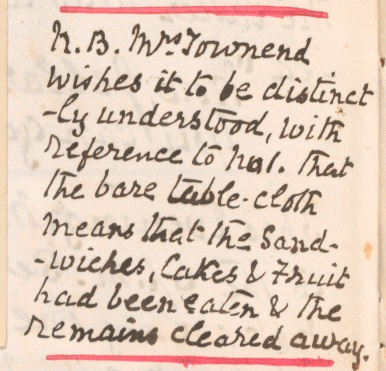 N.B. Mrs Townend
wishes it to be distinct
-ly understood, with
reference to No1. that
the bare table-cloth
means that the Sand-
-wiches, Cakes & Fruit
had been eaten & the
remains cleared away.